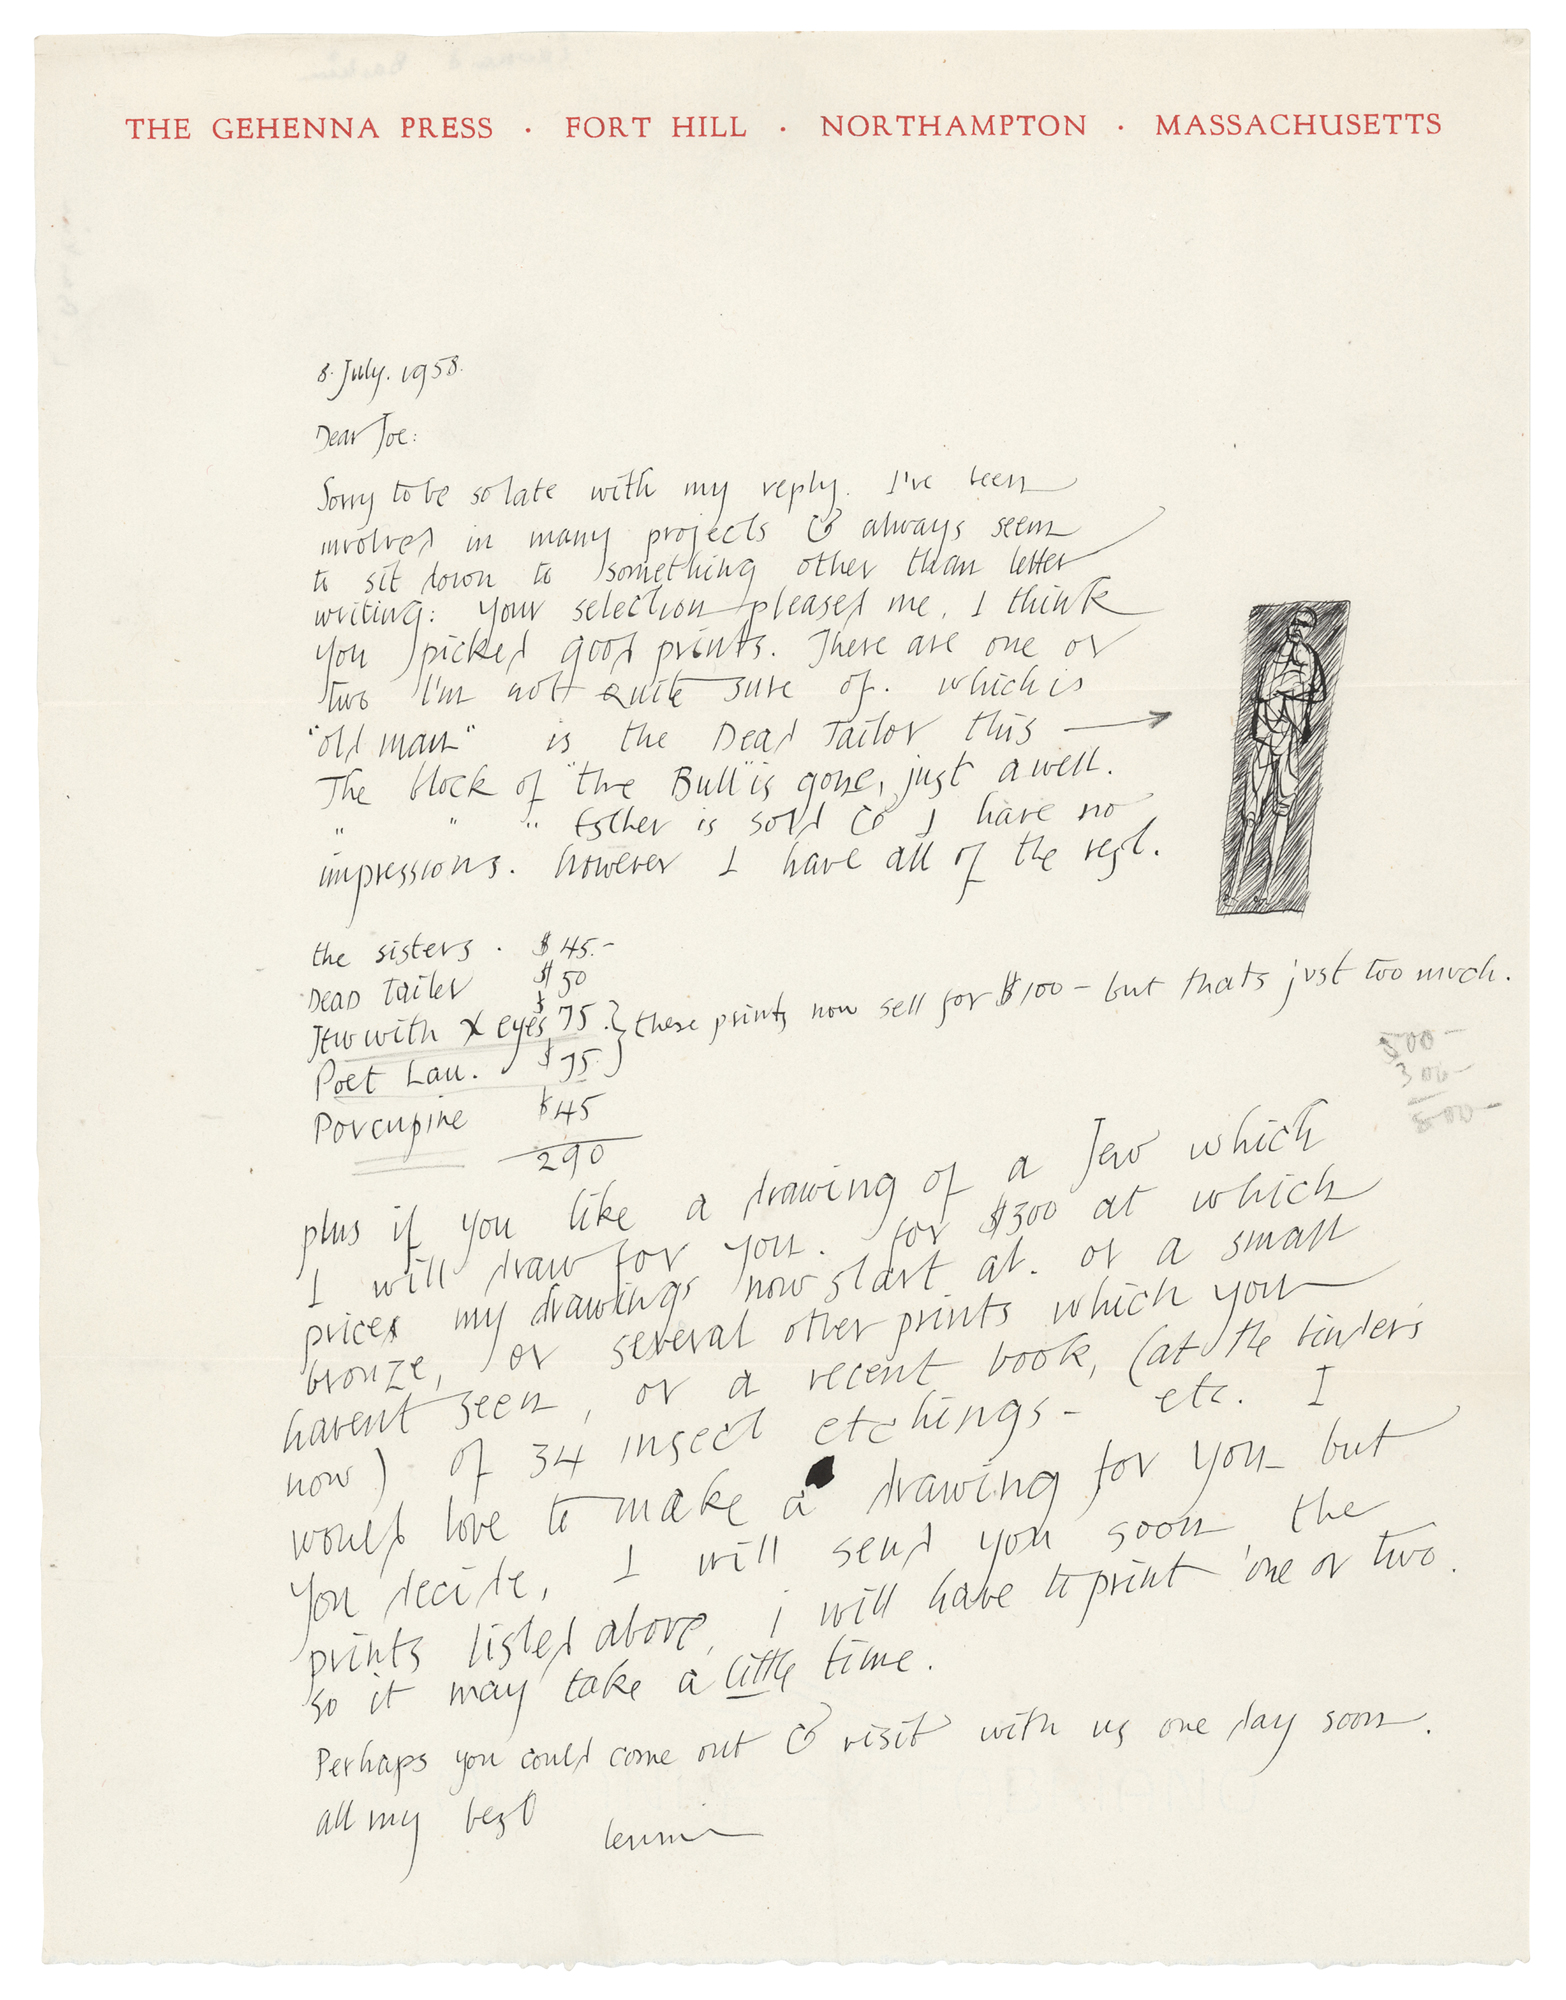 THE GEHENNA PRESS · FORT HILL · NORTHAMPTON · MASSACHUSETTS
8. July. 1958.
Dear Joe:
Sorry to be so late with my reply. I've been
involved in many projects & always seem
to sit down to something other than letter
writing: your selection pleased me. I think
you picked good prints. There are one or
two I'm not quite sure of. which is
"old man" is the Dead Tailor this →
The block of "the Bull" is gone, just as well.
" " " Esther is sold & I have no
impressions. however I have all of the rest.
the sisters . $45.-
Dead Tailer $50
Jew with X eyes $75 .} these prints now sell for $100 - but thats just too much.
Poet Lau. $75 }
Porcupine $45
290
500-
300-
800-
plus if you like a drawing of a Jew which
I will draw for you. for $300 at which
prices my drawings now start at. or a small
bronze, or several other prints which you
havent seen, or a recent book, (at the binders
now) of 34 insect etchings - etc. I
would love to make a drawing for you but
you decide, I will send you soon the
prints listed above, i will have to print one or two.
so it may take a little time.
Perhaps you could come out & visit with us one day soon.
all my best